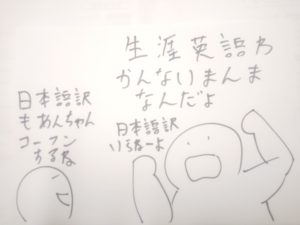 生涯英語わ
かんないまんま
なんだよ
日本語訳
もあんちゃん
コーフン
するね
日本語訳
いらねーよ